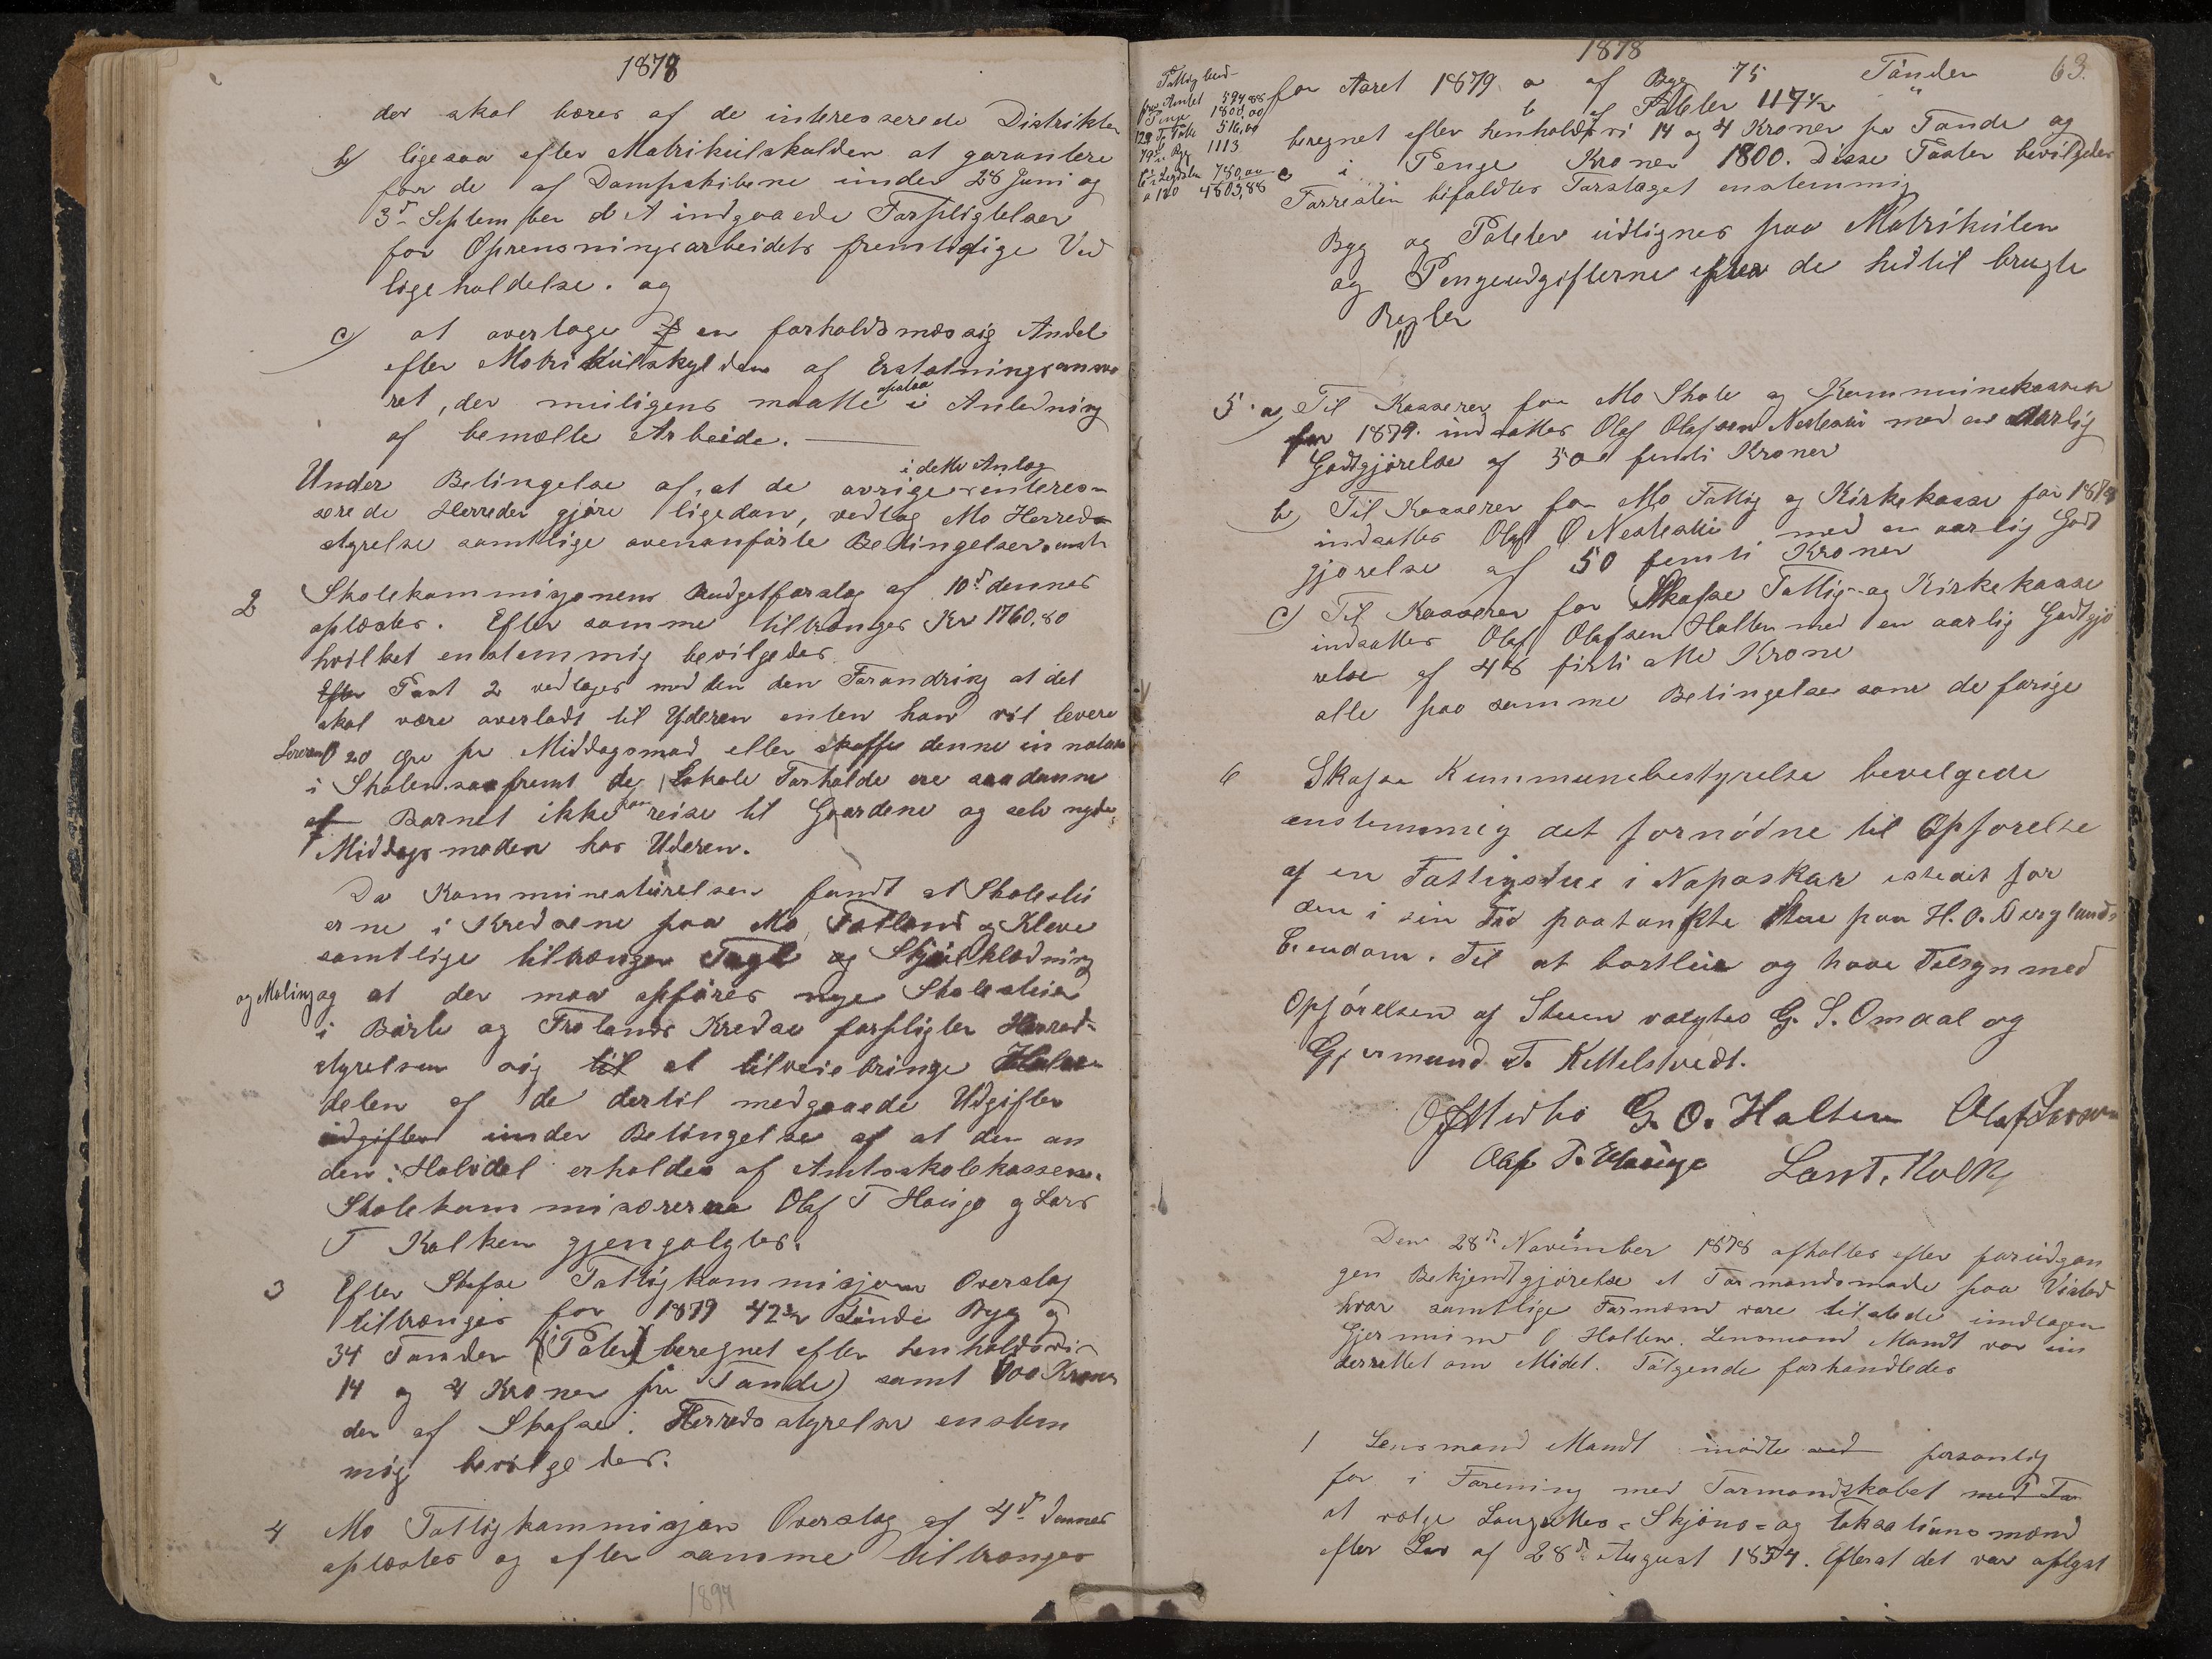 1878
der skal bæres af de interesserede Distrikter
b) ligesaa efter Matrikulskylden at garantere
for de af Dampskibene under 28 Juni og
3d September d A indgaaede Forpligtelser
for Oprensningsarbeidets fremtidige Ved
ligeholdelse. og
c) at overtage en forholdsmæssig Andel
efter Matrikulskylden af Erstatningsansva
ret, der muligens maatte opstaa i Anledning
af bemælte Arbeide.
Under Betingelse af, at de øvrige i dette Anlæg interes-
serede Herreder gjøre ligedan, vedtog Mo Herreds
styrelse samtlige ovenanførte Betingelser enst
2 Skolekommisjonens Budgetforslag af 10d dennes
oplæstes. Efter samme tiltrænges Kr 1760,80
hvilket enstemmig bevilgedes.
Efter Post 2 vedtages med den den Forandring at det
skal være overladt til Yderen enten han vil levere
Læreren 20 Øre pr Middagsmad eller skaffe denne in natura
i Skolen saafremt de Lokale Forholde ere saadanne
at Barnet ikke kan reise til Gaardene og selv nyde
Middagsmaden hos Yderen.
Da Kommunestyrelsen fandt at Skolestu
erne i Kredsene paa Mo, Fatland og Kleve
samtlige tiltrænger Tagl og Skjulklædning
og Maling og at der maa opføres nye Skolestuer
i Børte og Frolands Kredse forpligter Herred-
styrelsen sig til at tilveiebringe Halv-
delen af de dertil medgaaede Udgifter
udgifter under Betingelse af at den an
den Halvdel erholdes af Amtsskolekassen.
Skolekommisærerne Olaf T Hauge og Lars
T Kolken gjenvalgtes.
3 Efter Skafse Fattigkommisjons Overslag
tiltrænges for 1879 42½ Tønde Byg og
34 Tønder Poteter beregnet efter henholdsvis
14 og 4 Kroner pr Tønde) samt 600 Kroner
der af Skafse Herredsstyrelse enstem
mig bevilgedes.
4 Mo Fattigkommisjon Overslag af 4d dennes
oplæstes og efter samme tiltrænges
1894
1878
63.
Fattig bud-
fra Amtet 594,88
Penge 1800,00
129 T Pote 516,00
79½ T Byg 1113.
6½ Legdslm 780,00
a 120 4803,88
for Aaret 1879 a af Byg 75 Tønder
b af Poteter 117½ "
beregnet efter henholdsvi 14 og 4 Kroner pr Tønde og
c i Penge Kroner 1800. Disse Poster bevilgedes
Forresten bifaldtes Forslaget enstemmig
Byg og Poteter udlignes paa Matrikulen
og Pengeudgifterne efter de hidtil brugte
Regler
5 a, Til Kasserer for Mo Skole og Kommunekassen
for 1879. indsattes Olaf Olafsen Nesteslie med en aarlig
Godtgjørelse af 50 femti Kroner
b, Til Kasserer for Mo Fattig og Kirkekasse for 1879
indsattes Olaf O Nesteslie med en aarlig Godt
gjørelse af 50 femti Kroner
c) Til Kasserer for Skafse Fattig- og Kirkekasse
indsattes Olaf Olafsen Holten med en aarlig Godtgjø
relse af 48 førti otte Krone
alle paa samme Betingelse som de forige
6 Skafse Kummunebestyrelse bevelgede
enstemmig det fornødne til Opførelse
af en Fattigstue i Napaskar istedet for
den i sin Tid paatænkte Stue paa H. O. Berglands
Eiendom. Til at bortleie og have Tilsyn med
Opførelsen af Stuen valgtes G. S. Omdal og
Gjermund T. Kittelstvedt.
G. O. Holten Olaf Larsen
Olaf T. Hauge Lars T. Kolk
Den 28d November 1878 afholtes efter forudgan
gen Bekjendtgjørelse et Formandsmøde paa Vistad
hvor samtlige Formænd vare tilstede undtagen
Gjermund O Holten. Lensmand Mandt var un
derrettet om Mødet. Følgende forhandledes
1 Lensmand Mandt mødte ved personlig
for i Forening med Formandskabet med Fo
at vælge Laugrettes-Skjøns- og Taksationsmænd
efter Lov af 28d August 1854. Efterat det var oplyst